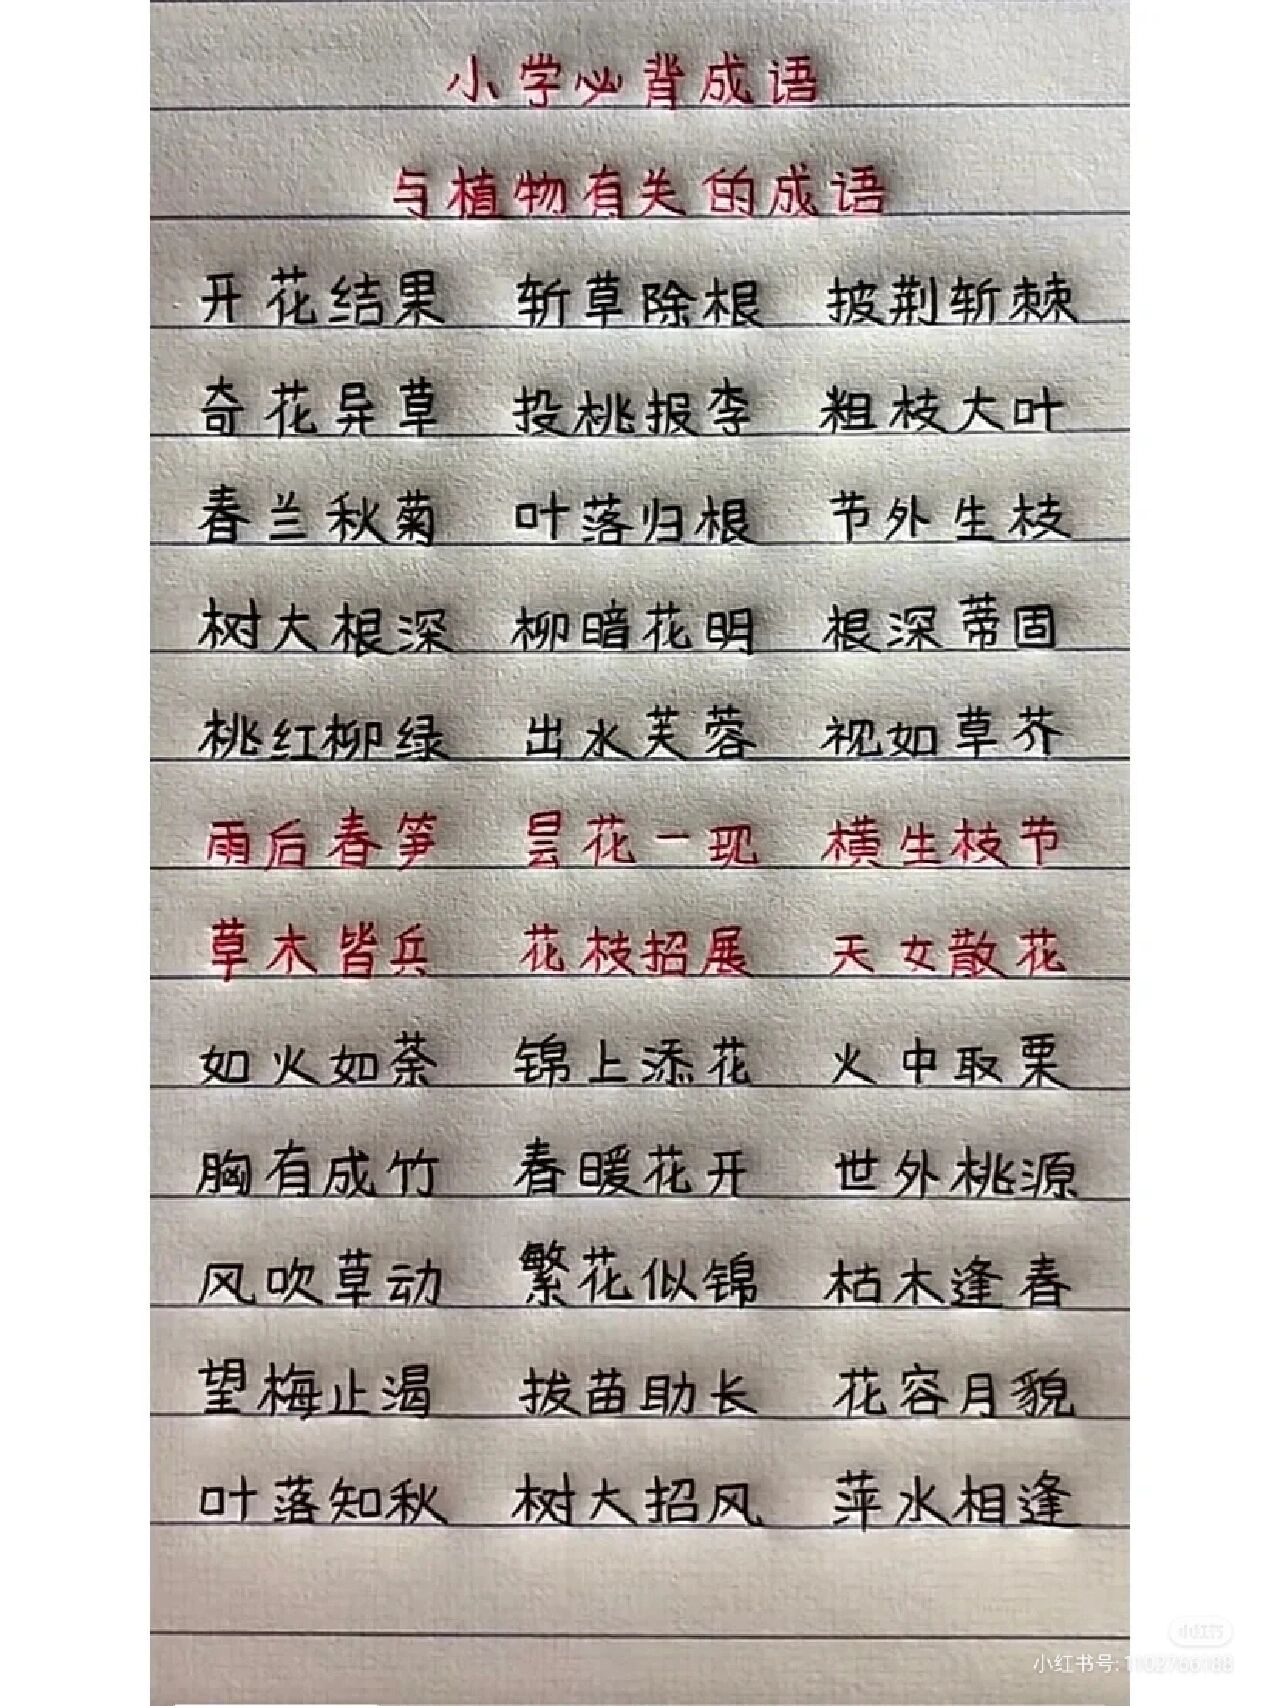 小学必背成语
与植物有关的成语
开花结果 斩草除根 披荆斩棘
奇花异草 投桃报李 粗枝大叶
春兰秋菊 叶落归根 节外生枝
树大根深 柳暗花明 根深蒂固
桃红柳绿 出水芙蓉 视如草芥
雨后春笋 昙花一现 横生枝节
草木皆兵 花枝招展 天女散花
如火如荼 锦上添花 火中取栗
胸有成竹 春暖花开 世外桃源
风吹草动 繁花似锦 枯木逢春
望梅止渴 拔苗助长 花容月貌
叶落知秋 树大招风 萍水相逢
小红书
小红书号: 1102766188